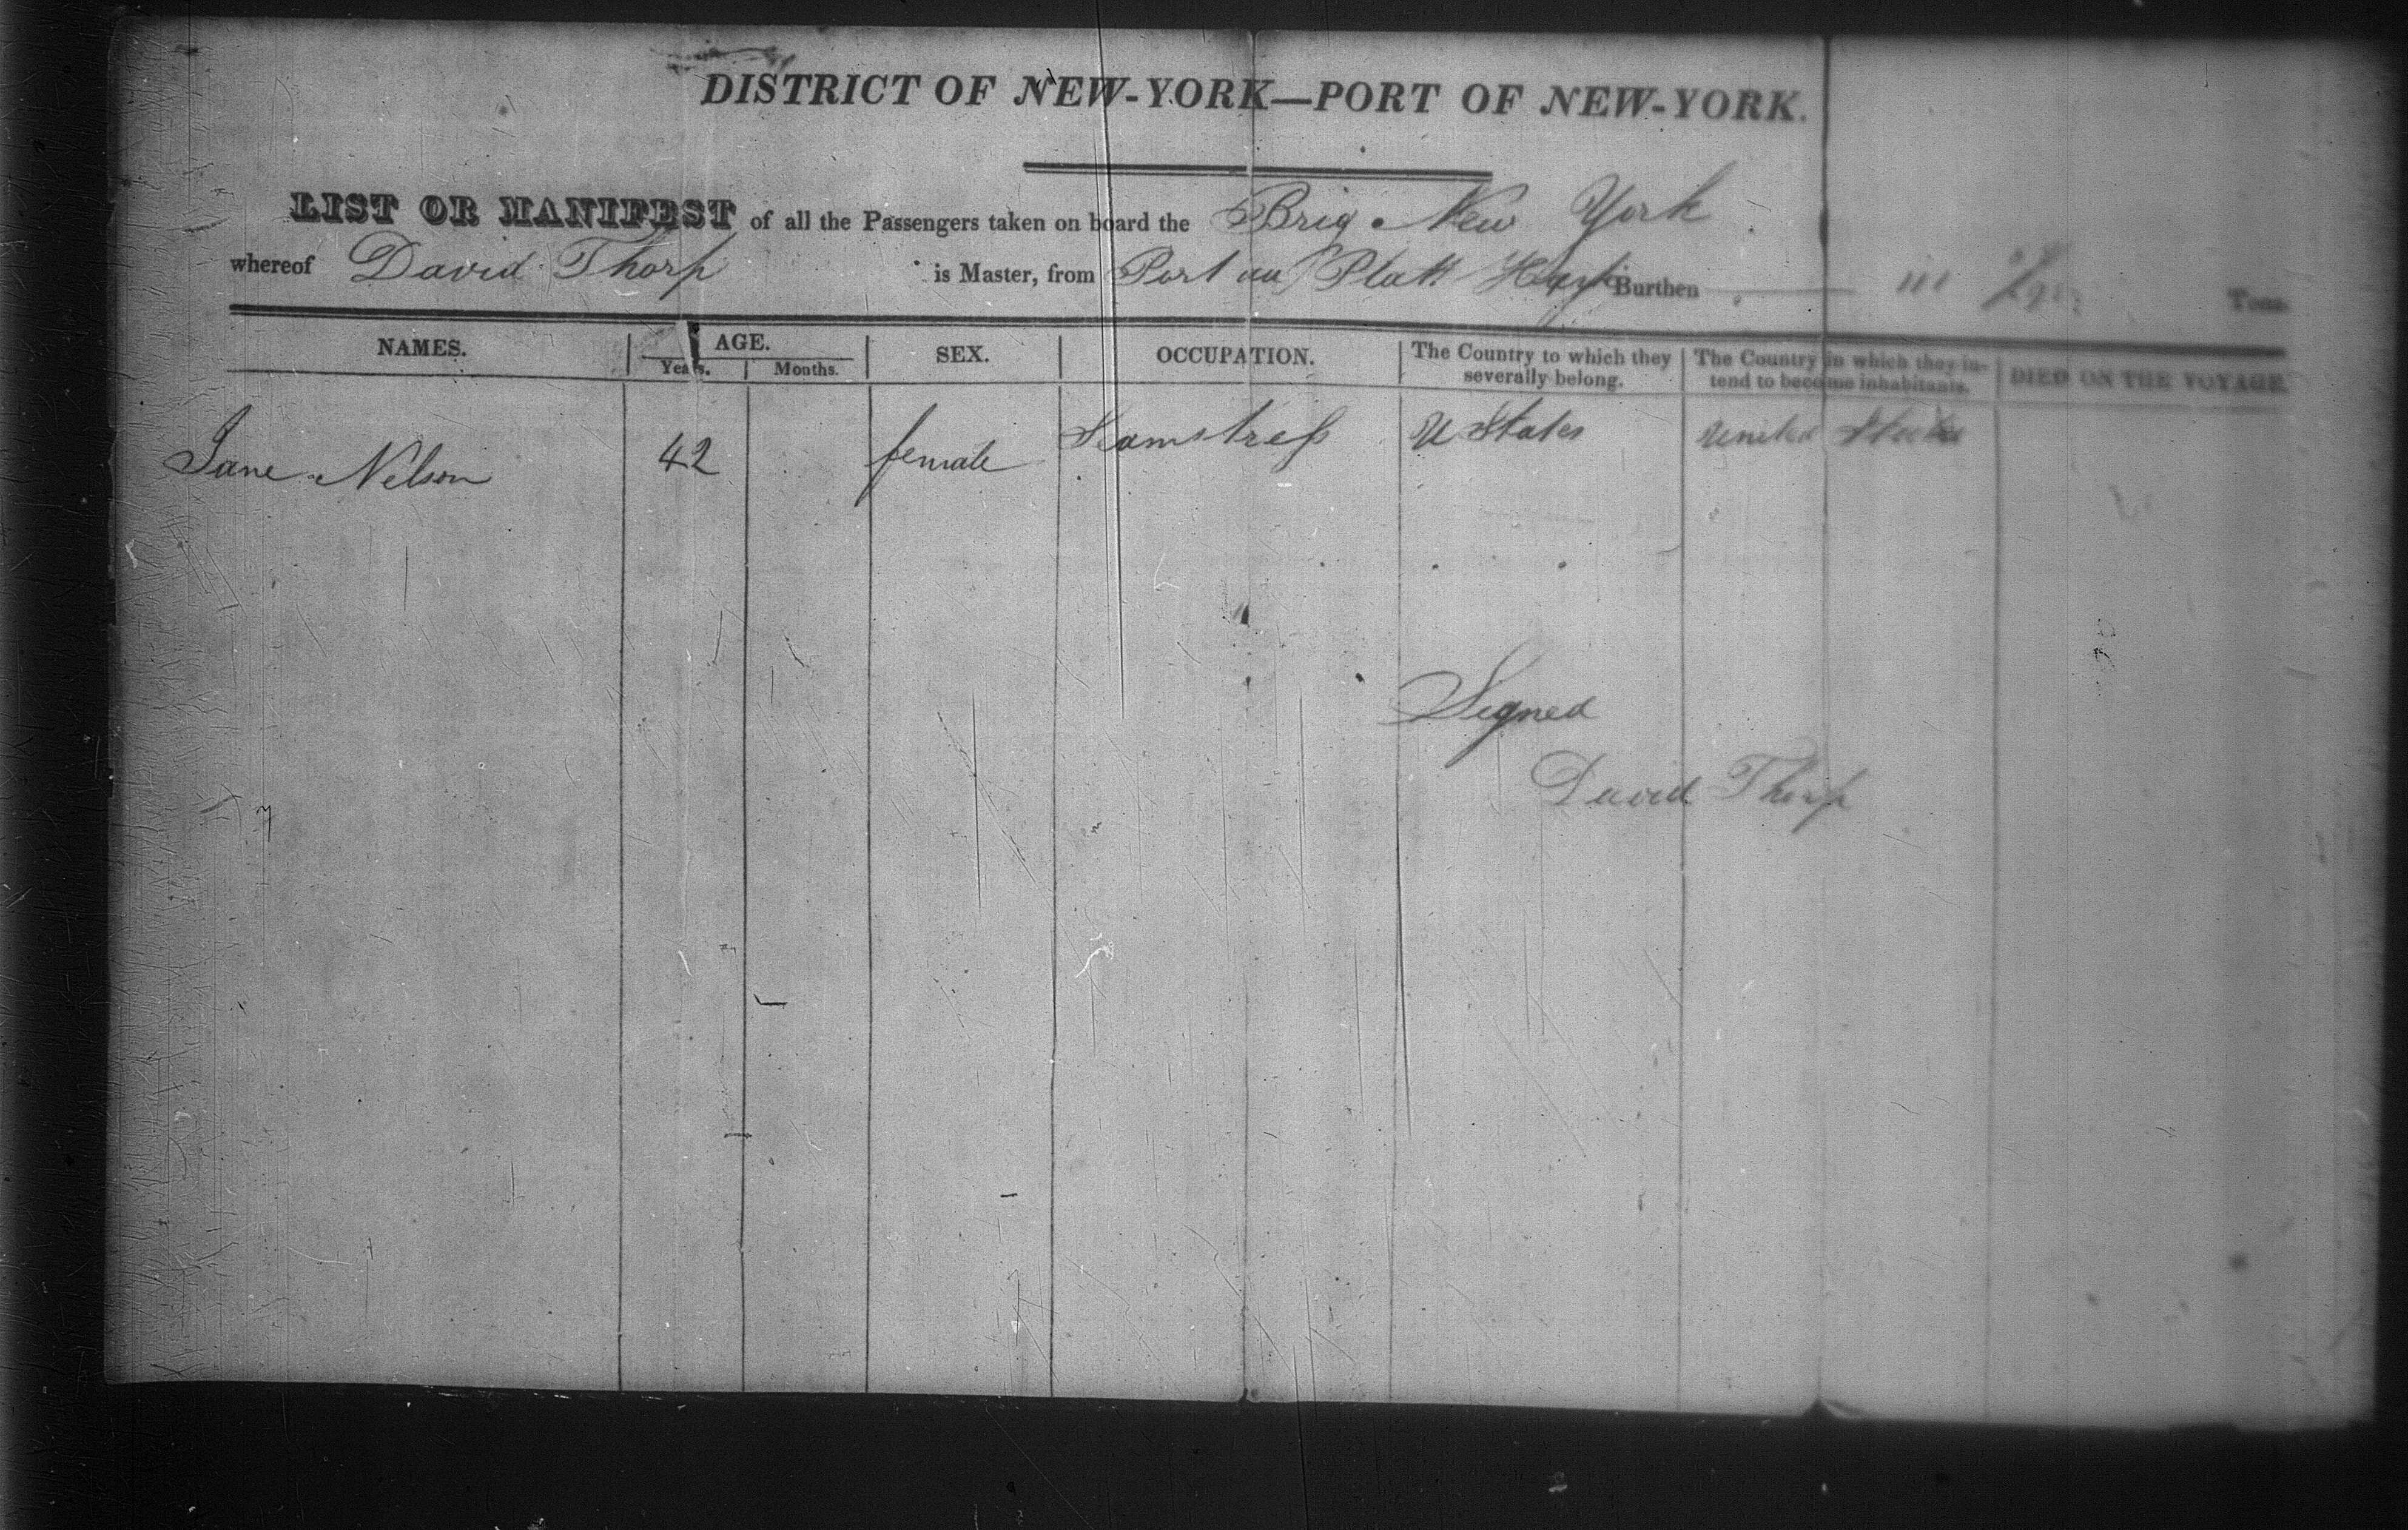 DISTRICT OF NEW-YORK—PORT OF NEW-YORK.
LIST OR MANIFEST of all the Passengers taken on board the Brig New York
whereof David Thorp is Master, from Port au Platt Hayti Burthen 111 Tons
NAMES. AGE. SEX. OCCUPATION. The Country to which they severally belong. The Country in which they intend to become inhabitants. DIED ON THE VOYAGE.
Years. Months.
Jane Nelson 42 female Seamstress U States United States
Signed
David Thorp